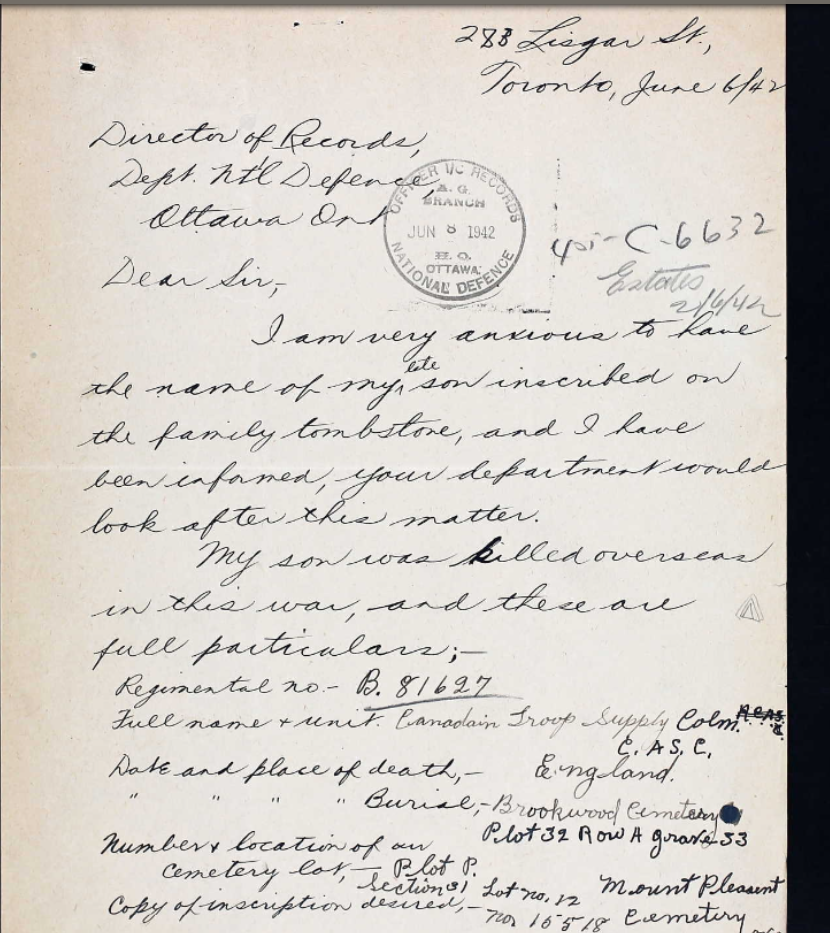 283 Lisgar St.,
Toronto, June 6/42
Director of Records,
Dept. Nt'l Defence,
Ottawa Ont
OFFICER I/C RECORDS
A. G.
BRANCH
JUN 8 1942
H. Q.
OTTAWA
NATIONAL DEFENCE
C-6632
Estates
2/6/42
Dear Sir,-
I am very anxious to have
the name of my late son inscribed on
the family tombstone, and I have
been informed, your department would
look after this matter.
My son was killed overseas
in this war, and these are
full particulars;-
Regimental no.- B. 81627
Full name + unit. Canadain Troop Supply Colm.
C. A.S.C.
Date and place of death,- England.
" " " " Burial,- Brookwood Cemetery
Plot 32 Row A grave 33
Number + location of our
cemetery lot,- Plot P.
Section 31 Lot no. 12 Mount Pleasent
Copy of inscription desired,- no. 15518 Cemetery